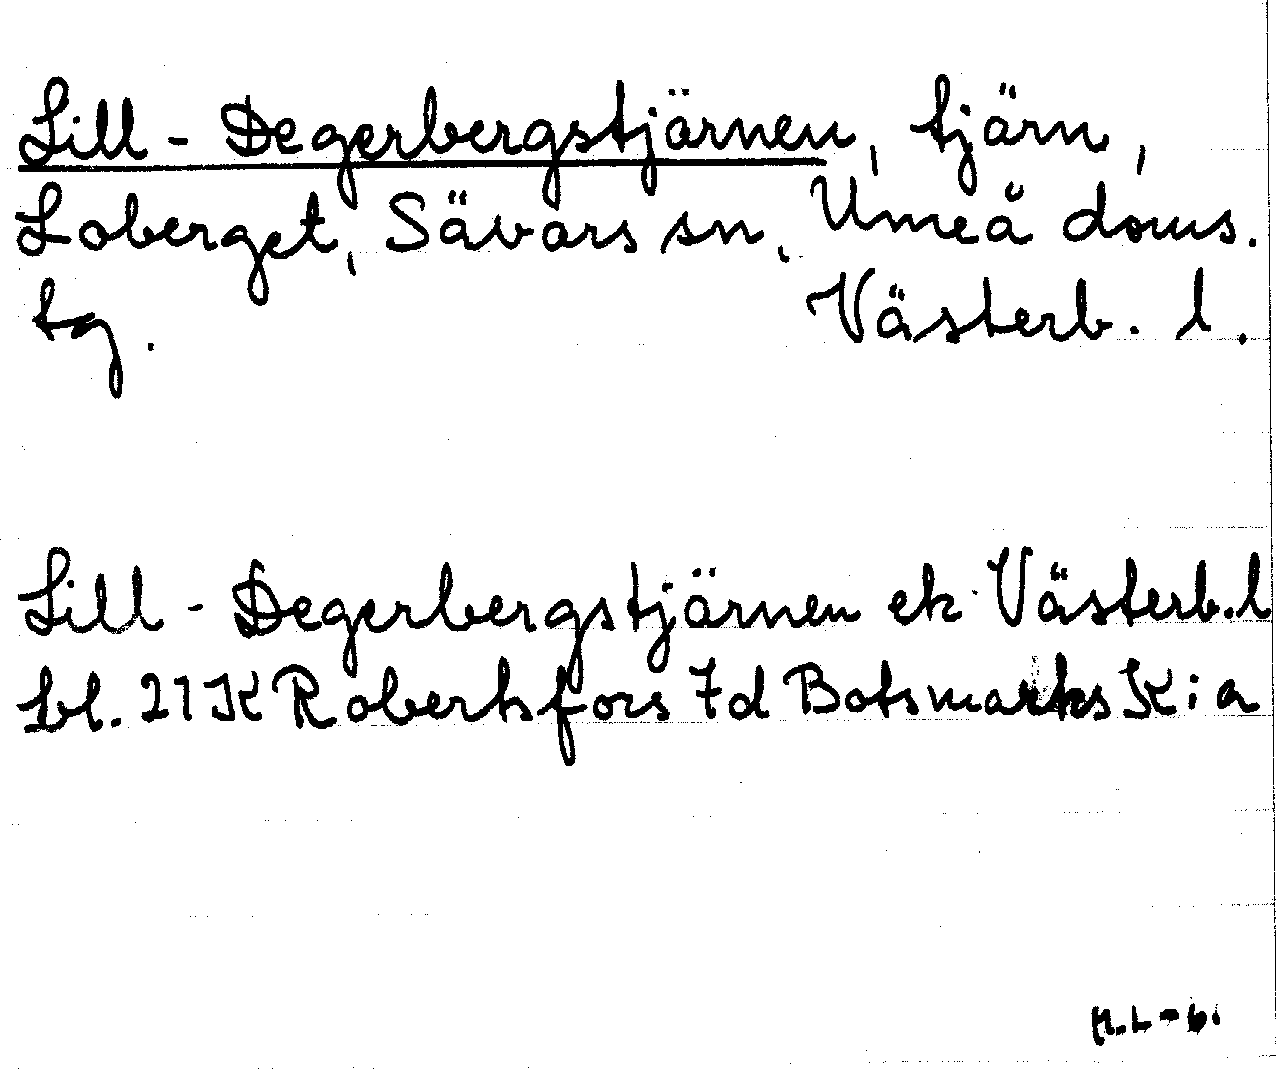 Lill-Degerbergstjärnen, tjärn,
Loberget, Sävars sn, Umeå doms.
tg. Västerb. l.
Lill-Degerbergstjärnen ek. Västerb. l
bl. 21K Robertsfors 7d Botsmarks K:a